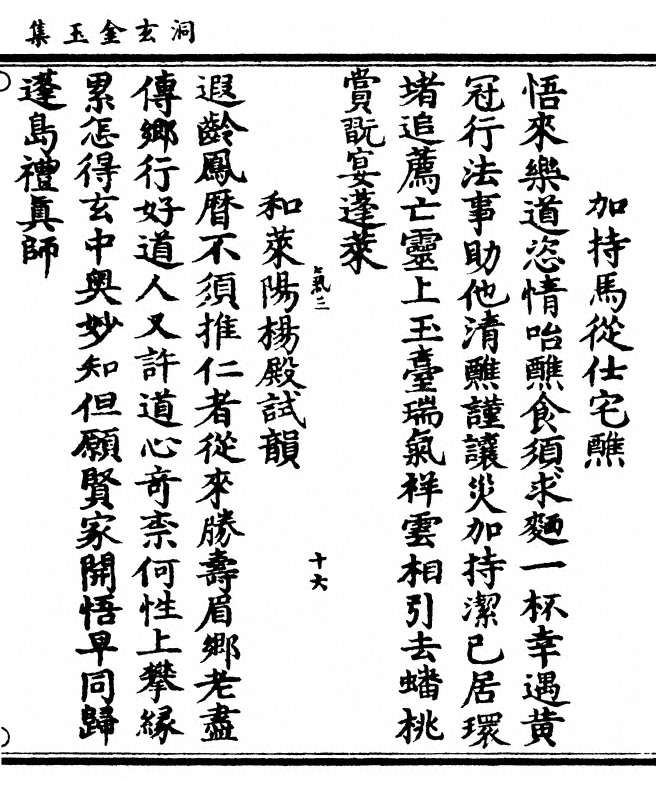 洞玄金玉集
加持馬從仕宅醮
悟來樂道恣情咍醮食須求麵一杯幸遇黃
冠行法事助他清醮謹讓災加持潔已居環
堵追薦亡靈上玉臺瑞氣祥雲相引去蟠桃
賞翫宴蓬萊
氣三
十六
和萊陽楊殿試韻
遐齡鳳曆不須推仁者從來勝壽眉鄉老盡
傳鄉行好道人又許道心奇柰何性上攀緣
累怎得玄中奧妙知但願賢家開悟早同歸
蓬島禮眞師